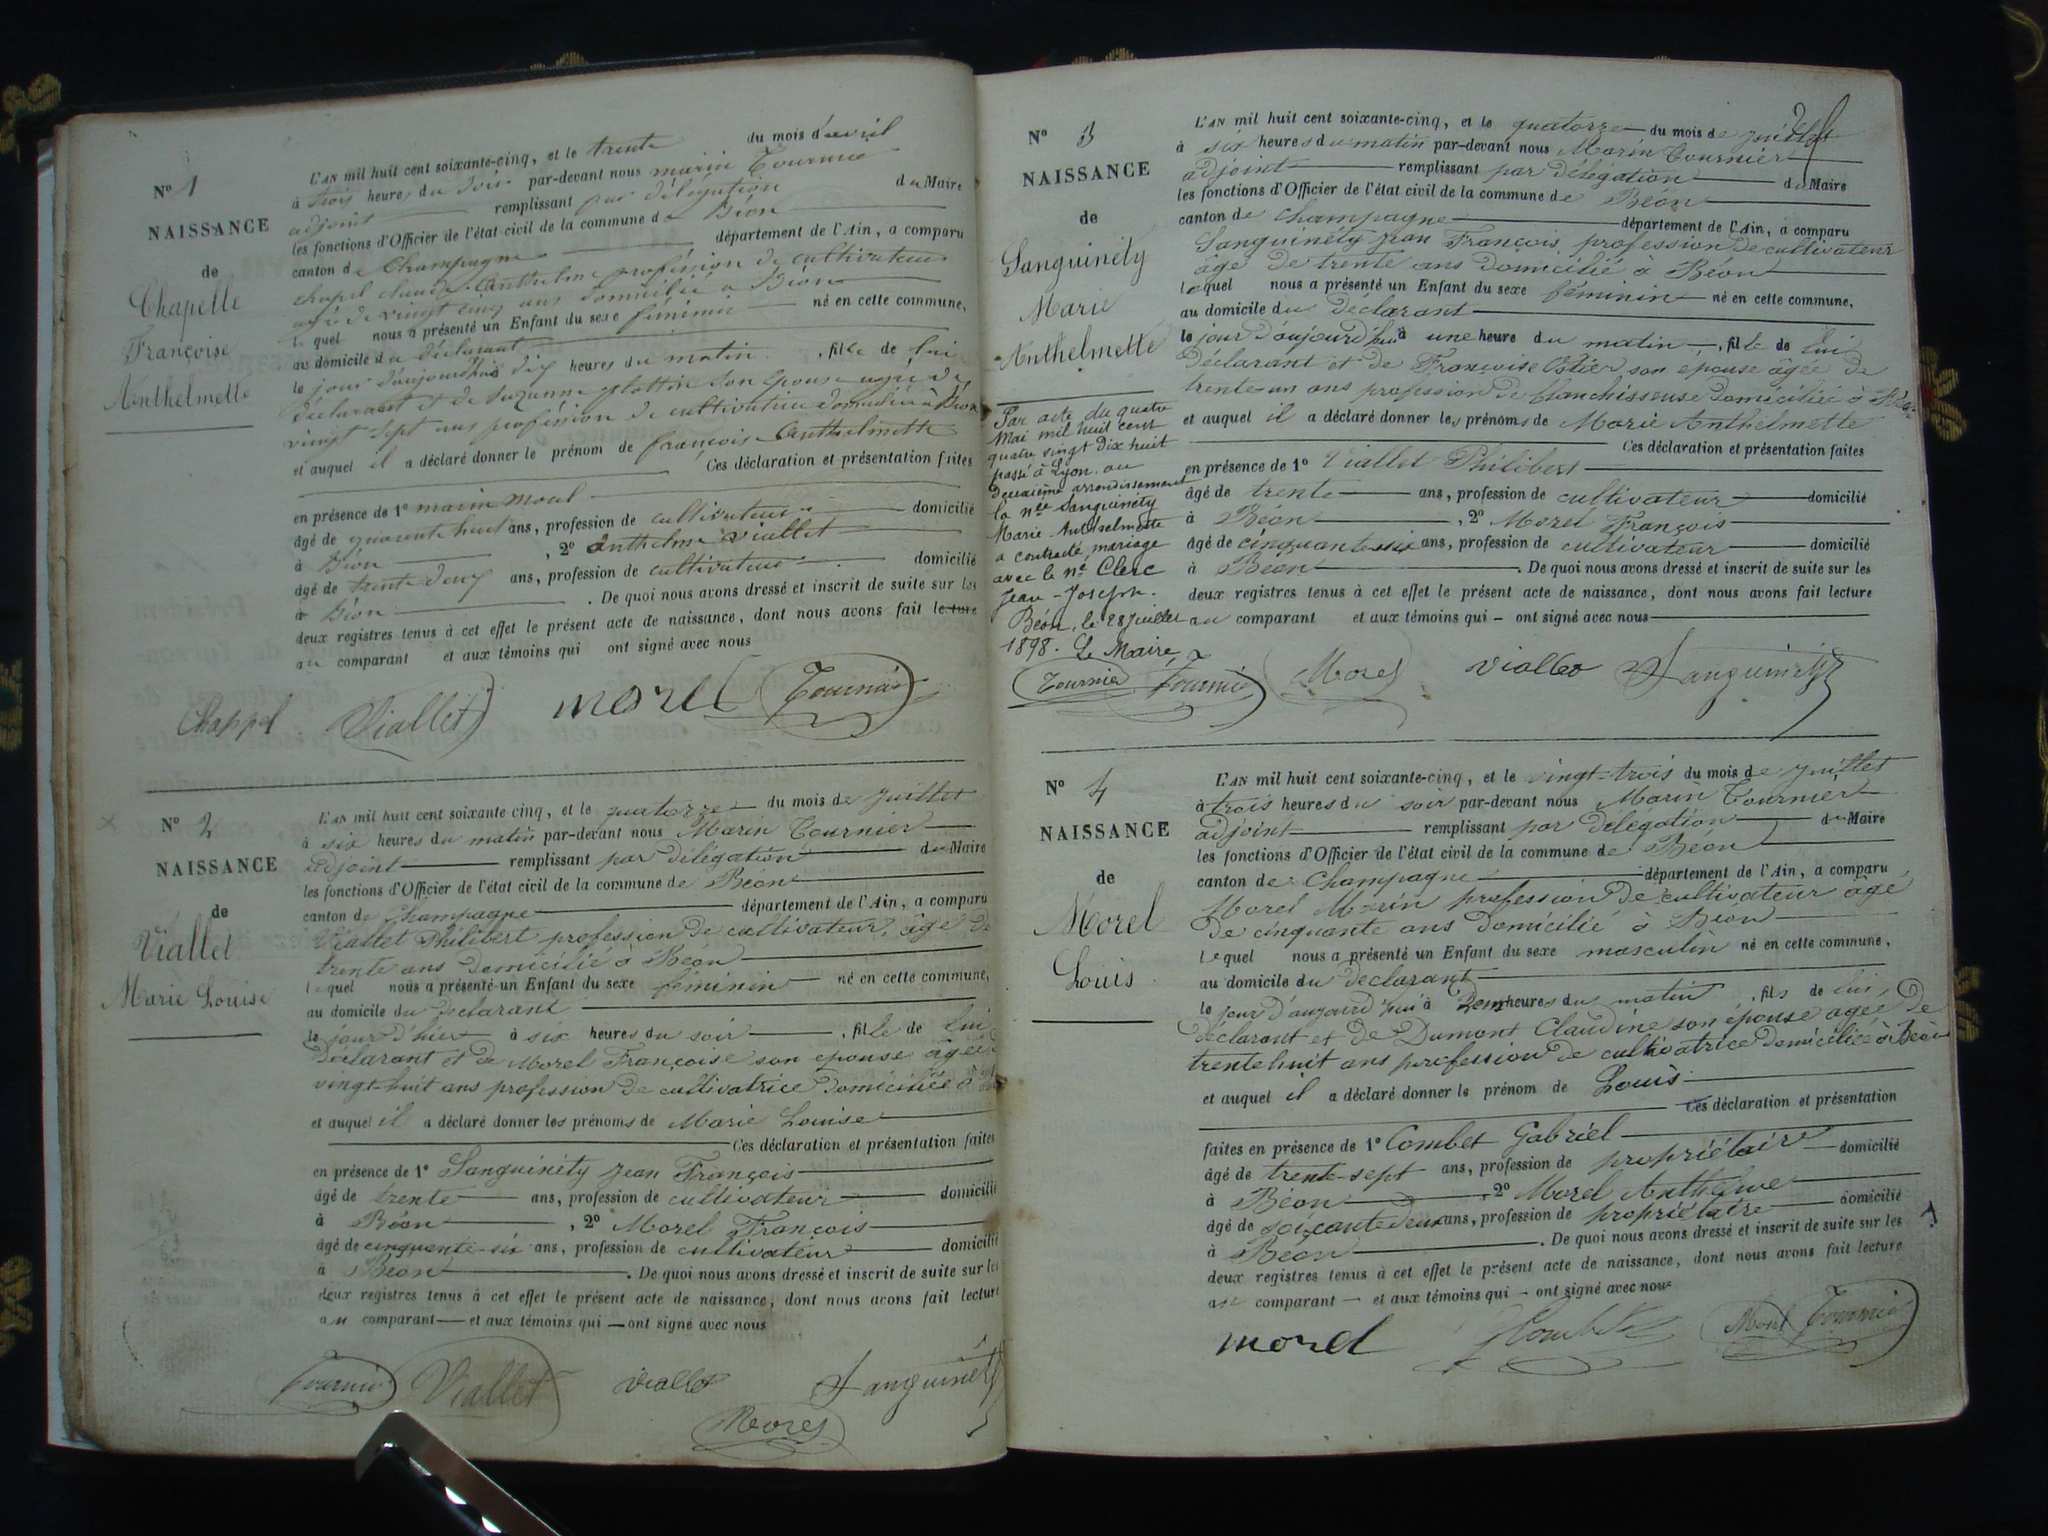 N° 1
NAISSANCE
de
Chapelle
Françoise
Anthelmette
L'AN mil huit cent soixante-cinq, et le trente du mois d'avril
à trois heures du soir par-devant nous marin Tournier
adjoint remplissant par délégation du Maire
les fonctions d'Officier de l'état civil de la commune de Béon
canton de Champagne département de l'Ain, a comparu
chapel claude Anthelme profession de cultivateur
agé de vingt cinq ans domicilié a Béon
le quel nous a présenté un Enfant du sexe féminin né en cette commune,
au domicile du déclarant
le jour d'aujourdhui à dix heures du matin, fille de lui
déclarant et de Suzanne son épouse agée de
vingt sept ans profession de cultivatrice domiciliée à Béon
et auquel il a déclaré donner le prénom de françoise Anthelmette
Ces déclaration et présentation faites
en présence de 1° marin morel
âgé de quarante huit ans, profession de cultivateur domicilié
à Béon, 2° anthelme viallet
âgé de trente deux ans, profession de cultivateur domicilié
à Béon. De quoi nous avons dressé et inscrit de suite sur les
deux registres tenus à cet effet le présent acte de naissance, dont nous avons fait lecture
au comparant et aux témoins qui ont signé avec nous
Chappel Viallet morel Tournier
N° 2
NAISSANCE
de
Viallet
Marie Louise
L'AN mil huit cent soixante cinq, et le quatorze du mois de juillet
à six heures du matin par-devant nous Marin Tournier
adjoint remplissant par délégation du Maire
les fonctions d'Officier de l'état civil de la commune de Béon
canton de Champagne département de l'Ain, a comparu
Viallet Philibert profession de cultivateur, âgé de
trente ans domicilié à Béon
lequel nous a présenté un Enfant du sexe féminin né en cette commune,
au domicile du déclarant
le jour d'hier à six heures du soir, fille de lui
déclarant et de Morel Françoise son épouse âgée
vingt-huit ans profession de cultivatrice domiciliée à
et auquel il a déclaré donner les prénoms de Marie Louise
Ces déclaration et présentation faites
en présence de 1° Sanguinéty Jean François
âgé de trente ans, profession de cultivateur domicilié
à Béon, 2° Morel François
âgé de cinquante-six ans, profession de cultivateur domicilié
à Béon. De quoi nous avons dressé et inscrit de suite sur les
deux registres tenus à cet effet le présent acte de naissance, dont nous avons fait lecture
au comparant et aux témoins qui ont signé avec nous
Tournier Viallet viallet Sanguinéty
Morel
N° 3
NAISSANCE
de
Sanguinéty
Marie
Anthelmette
Par acte du quatre
Mai mil huit cent
quatre vingt dix huit
passé à Lyon au
deuxième arrondissement
la née Sanguinéty
Marie-Anthelmette
a contracté mariage
avec le né Clerc
Jean-Joseph.
Béon, le 28 juillet
1898. Le Maire,
Tournier
L'AN mil huit cent soixante-cinq, et le quatorze du mois de juillet
à six heures du matin par-devant nous Marin Tournier
adjoint remplissant par délégation du Maire
les fonctions d'Officier de l'état civil de la commune de Béon
canton de Champagne département de l'Ain, a comparu
Sanguinéty Jean François, profession de cultivateur
âgé de trente ans domicilié à Béon
lequel nous a présenté un Enfant du sexe féminin né en cette commune,
au domicile du déclarant
le jour d'aujourd'hui à une heure du matin, fille de lui
déclarant et de Françoise Ostier son épouse âgée de
trente-un ans profession de blanchisseuse domiciliée à Béon
et auquel il a déclaré donner les prénoms de Marie Anthelmette
Ces déclaration et présentation faites
en présence de 1° Viallet Philibert
âgé de trente ans, profession de cultivateur domicilié
à Béon, 2° Morel François
âgé de cinquante six ans, profession de cultivateur domicilié
à Béon. De quoi nous avons dressé et inscrit de suite sur les
deux registres tenus à cet effet le présent acte de naissance, dont nous avons fait lecture
au comparant et aux témoins qui - ont signé avec nous
Tournier Morel viallet Sanguinéty
N° 4
NAISSANCE
de
Morel
Louis
L'AN mil huit cent soixante-cinq, et le vingt-trois du mois de juillet
à trois heures du soir par-devant nous Marin Tournier
adjoint remplissant par délégation du Maire
les fonctions d'Officier de l'état civil de la commune de Béon
canton de Champagne département de l'Ain, a comparu
Morel Marin profession de cultivateur âgé
de cinquante ans domicilié à Béon
lequel nous a présenté un Enfant du sexe masculin né en cette commune,
au domicile du déclarant
le jour d'aujourd'hui à deux heures du matin, fils de lui,
déclarant et de Dumont Claudine son épouse agée de
trente huit ans profession de cultivatrice domiciliée à Béon
et auquel il a déclaré donner le prénom de Louis
Ces déclaration et présentation
faites en présence de 1° Combet Gabriel
âgé de trente-sept ans, profession de propriétaire domicilié
à Béon, 2° Morel Anthelme
âgé de soixante deux ans, profession de propriétaire domicilié
à Béon. De quoi nous avons dressé et inscrit de suite sur les
deux registres tenus à cet effet le présent acte de naissance, dont nous avons fait lecture
au comparant - et aux témoins qui - ont signé avec nous
morel Combet Morel Tournier